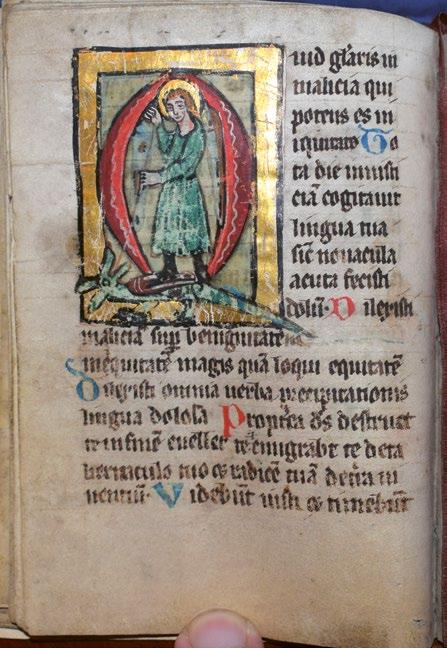 uid gl̄aris in
malicia qui
potens es in
iniquitate To
ta die iniusti
ciā cogitauit
lingua tua
sic̄ nouacula
acuta fecisti
dolū· Dilexisti
maliciā sup̄ benignitatē
iniquitatē magis quā loqui equitatē
Dilexisti omnia uerba precipitationis
lingua dolosa Propt̄ea dš destruet
te in finē euellet te emigrabt̄ te de ta
bernaculo tuo et radicē tuā de t̄ra ui
uentiū· Videbūt iusti et timebūt